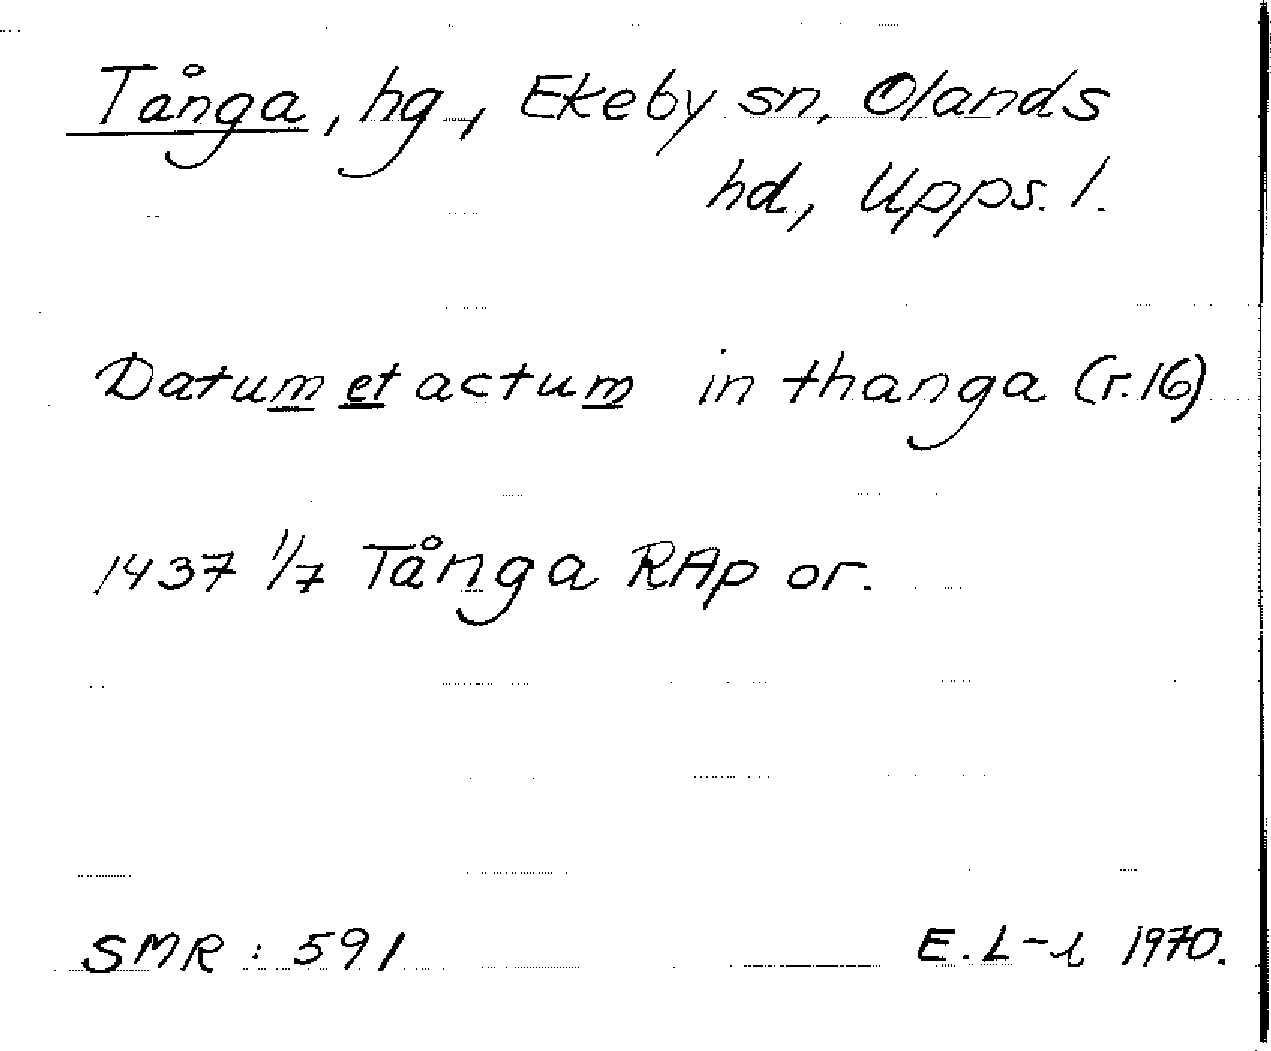 Tånga, hg., Ekeby sn, Olands
hd, Upps. l.
Datum et actum in thanga (r.16)
1437 1/7 Tånga RAp or.
SMR: 591
E. L-l 1970.